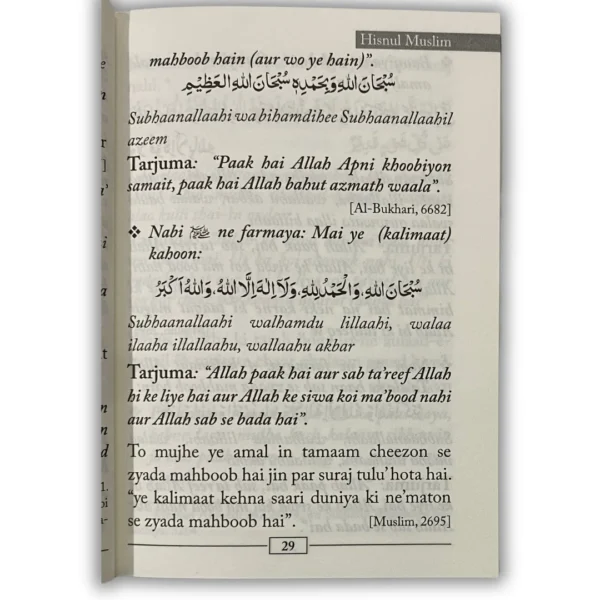 Hisnul Muslim
mahboob hain (aur wo ye hain)”.
سُبْحَانَ اللهِ وَبِحَمْدِهٖ سُبْحَانَ اللهِ الْعَظِيْمِ
Subhaanallaahi wa bihamdihee Subhaanallaahil
azeem
Tarjuma: “Paak hai Allah Apni khoobiyon
samait, paak hai Allah bahut azmath waala”.
[Al-Bukhari, 6682]
❖ Nabi ﷺ ne farmaya: Mai ye (kalimaat)
kahoon:
سُبْحَانَ اللهِ، وَالْحَمْدُ لِلّٰهِ، وَلَآ اِلٰهَ اِلَّا اللهُ، وَاللهُ اَكْبَرُ
Subhaanallaahi walhamdu lillaahi, walaa
ilaaha illallaahu, wallaahu akbar
Tarjuma: “Allah paak hai aur sab ta’reef Allah
hi ke liye hai aur Allah ke siwa koi ma’bood nahi
aur Allah sab se bada hai”.
To mujhe ye amal in tamaam cheezon se
zyada mahboob hai jin par suraj tulu’ hota hai.
“ye kalimaat kehna saari duniya ki ne’maton
se zyada mahboob hai”. [Muslim, 2695]
29